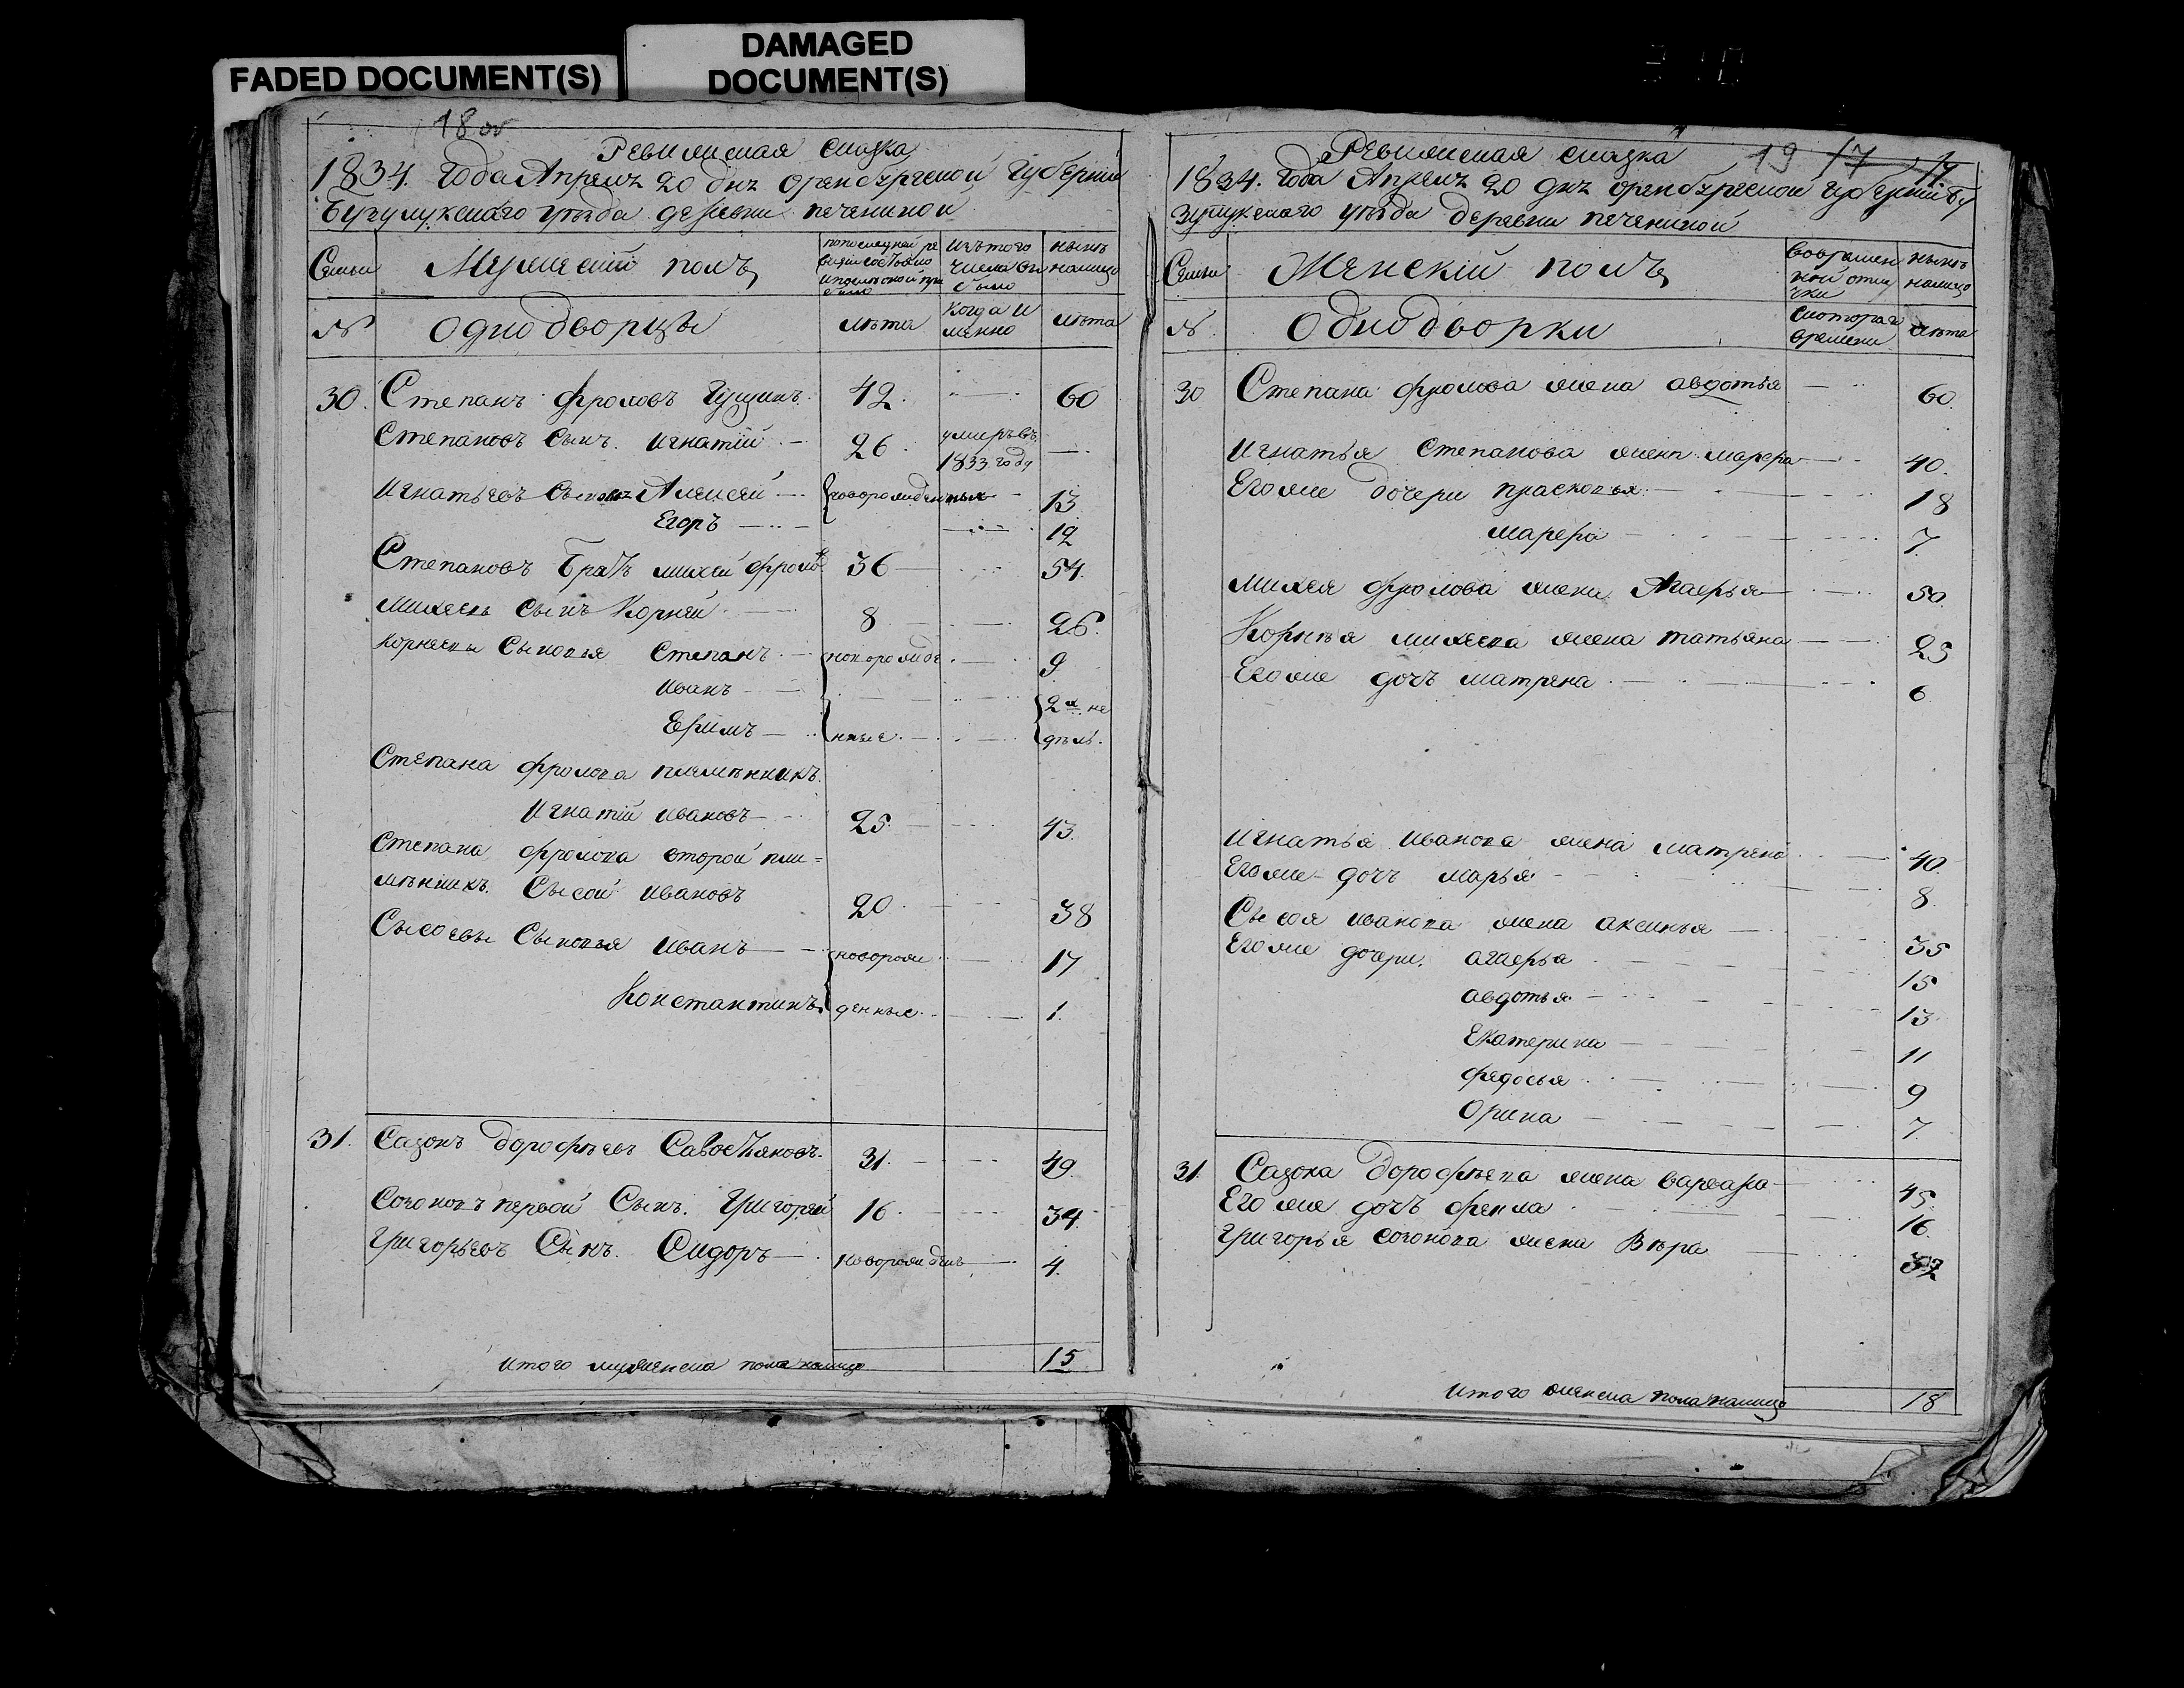 FADED DOCUMENT(S)
DAMAGED
DOCUMENT(S)
18 об
Ревижская сказка
1834. Года Апреля 20 дня Оренбургской Губернии
Бузулукскаго уѣзда деревни печениной
Семьи
Мужеский полъ
попоследней ре
визии состояло
и после оной при
было
изътого
числа вы
было
нынѣ
налицо
№
Однодворцы
лѣта
Когда и
менно
лѣта
30. Степанъ фроловъ Гущинъ. 42. 60
Степановъ Сынъ. Игнатій 26. умеръ въ
1833 году
Игнатьевъ Сыновья Алексей новорожденныя 13
Егоръ 12
Степановъ Братъ михей фролов 36 54.
Михеевъ Сынъ Корней 8 26.
Корнеевы Сыновья Степанъ новорожде 9
Иванъ 2х не
Ефимъ нные дѣль.
Степана фролова племянникъ
Игнатій Ивановъ 25. 43.
Степана фролова второй пле=
мянникъ. Сысой Ивановъ 20. 38
Сысоевы Сыновья Иванъ новорож 17
Константинъ денные 1.
31. Сазонъ дорофѣевъ Савостьяновъ. 31. 49.
Созоновъ первой Сынъ. Григорей 16. 34.
Григорьевъ Сынъ. Сидоръ новорожденъ 4.
Итого мужеска пола налицо 15
Ревижская сказка 19 17 17
1834. Года Апреля 20 дня Оренбургской Губернии Бу
зулукскаго уѣзда деревни печениной
Семьи
Женскій полъ
Вовремен
ной отлу
чки
нынѣ
налицо
№.
Однодворки
Скотораго
времени
лѣта
30 Степана фролова жена авдотья 60.
Игнатья Степанова жена марфа 40.
Егоже дочери прасковья 18
марфа 7
михея фролова жена Агафья 50.
Корнѣя михеева жена татьяна 25
Егоже дочь матрена 6
Игнатья Иванова жена матрена 40.
Егоже дочь марья 8.
Сысоя Иванова жена аксинья 35
Егоже дочери. агафья 15
авдотья 13
Екатерина 11
федосья 9
Орина 7.
31. Сазона дорофѣева жена варвара 45.
Егоже дочь фекла 16.
Григорья созонова жена Вѣра 32
Итого женска пола налицо 18